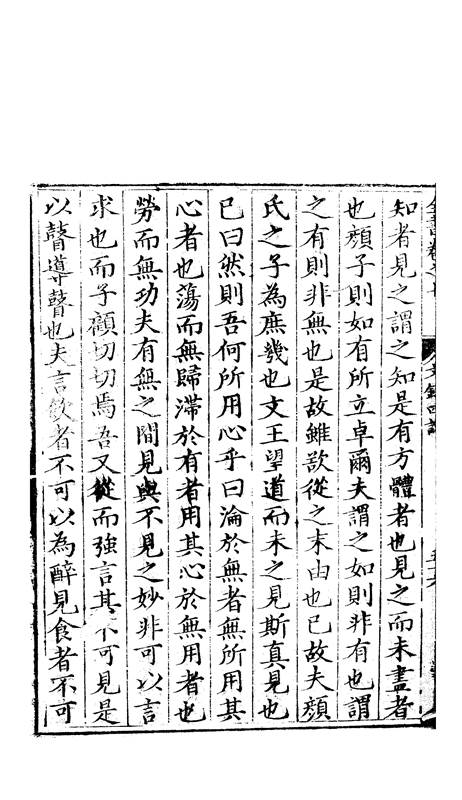 知者見之謂之知是有方體者也見之而未盡者
也顏子則如有所立卓爾夫謂之如則非有也謂
之有則非無也是故雖欲從之末由也已故夫顏
氏之子為庶幾也文王望道而未之見斯真見也
已曰然則吾何所用心乎曰淪於無者無所用其
心者也蕩而無歸滯於有者用其心於無用者也
勞而無功夫有無之間見與不見之妙非可以言
求也而子顧切切焉吾又從而強言其不可見是
以瞽導瞽也夫言飲者不可以為醉見食者不可